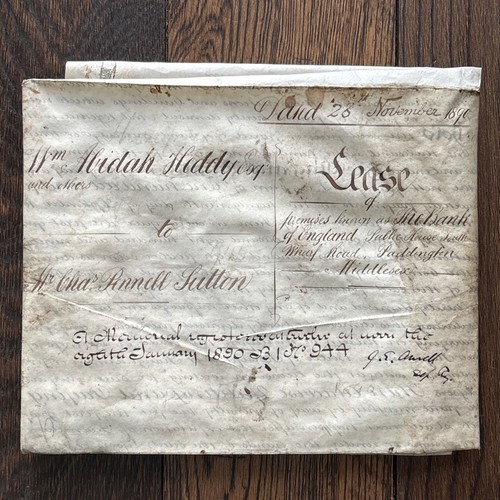 Dated 28th November 1890
Wm Hidah Heddy Esq.
and others
to
Mr Chas. Pennell Sutton
Lease
of
premises known as The Bank
of England Public House South
Wharf Road, Paddington
Middlesex
A Memorial registered at noon the
eighth January 1890 B 1 No 944